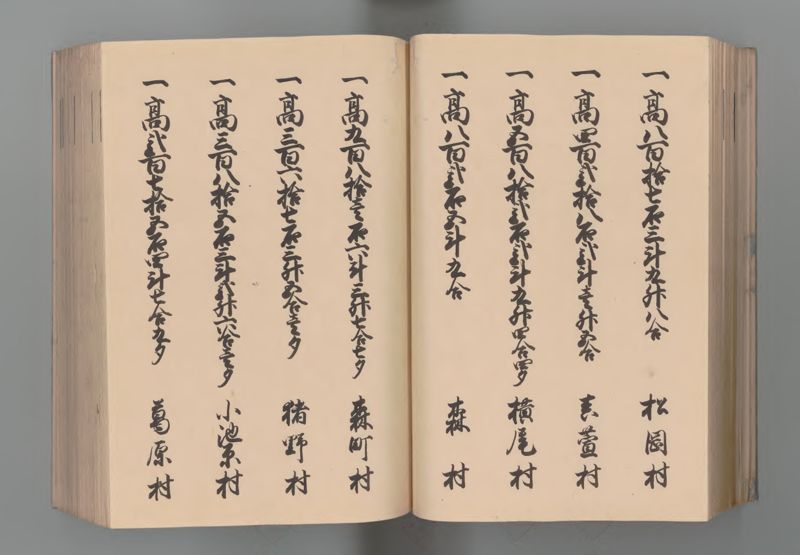 一高八百拾七石三斗九升八合 松岡村
一高四百弐拾八石弐斗壱升五合 志萱村
一高五百八拾弐石弐斗九升四合四夕 横尾村
一高八百弐石五斗九合 森村
一高九百八拾壱石六斗三升七合七夕 森町村
一高三百六拾七石三升五合壱夕 猪野村
一高三百八拾五石三斗弐升六合壱夕 小池原村
一高弐百七拾五石四斗七合九夕 葛原村